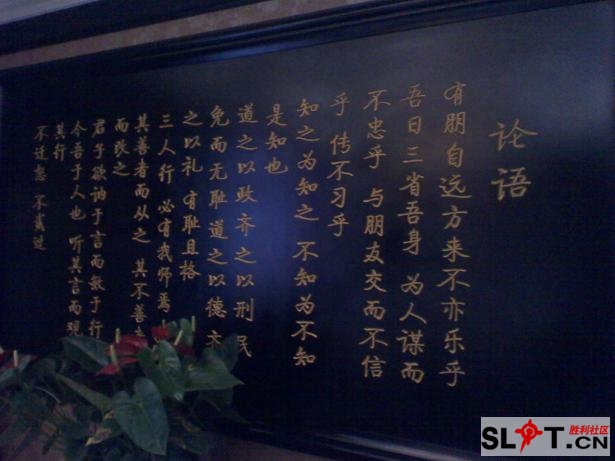 论语
有朋自远方来不亦乐乎
吾日三省吾身 为人谋而
不忠乎 与朋友交而不信
乎 传不习乎
知之为知之 不知为不知
是知也
道之以政齐之以刑民
免而无耻道之以德
之以礼 有耻且格
三人行 必有我师焉
其善者而从之 其不善
而改之
君子欲讷于言而敏于行
今吾于人也 听其言而观
其行
不迁怒 不贰过
SLOT.CN
胜利社区